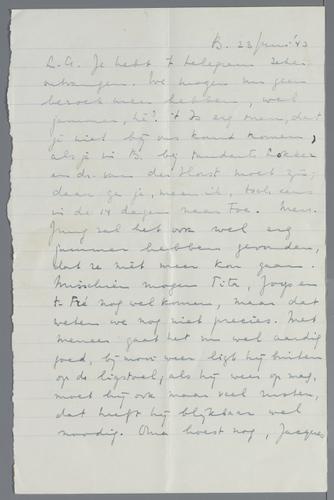 B. 23/juni '43
L.G. Je hebt 't telegram zeker
ontvangen. We mogen nu geen
bezoek meer hebben, wel
jammer, hè! 't Is erg naar, dat
je niet bij ons kunt komen,
als je in B. bij tandarts Lokker
en dr. van der Horst moet zijn;
daar ga je, meen ik, toch eens
in de 14 dagen naar toe. Mevr.
Jung zal het ook wel erg
jammer hebben gevonden,
dat ze niet meer kon gaan.
Misschien mogen Tita, Joys en
t. Fré nog wel komen, maar dat
weten we nog niet precies. Met
meneer gaat het nu wel aardig
goed, bij mooi weer ligt hij buiten
op de ligstoel, als hij weer op mag,
moet hij ook maar veel rusten,
dat heeft hij blijkbaar wel
noodig. Oma hoest nog, Jacques